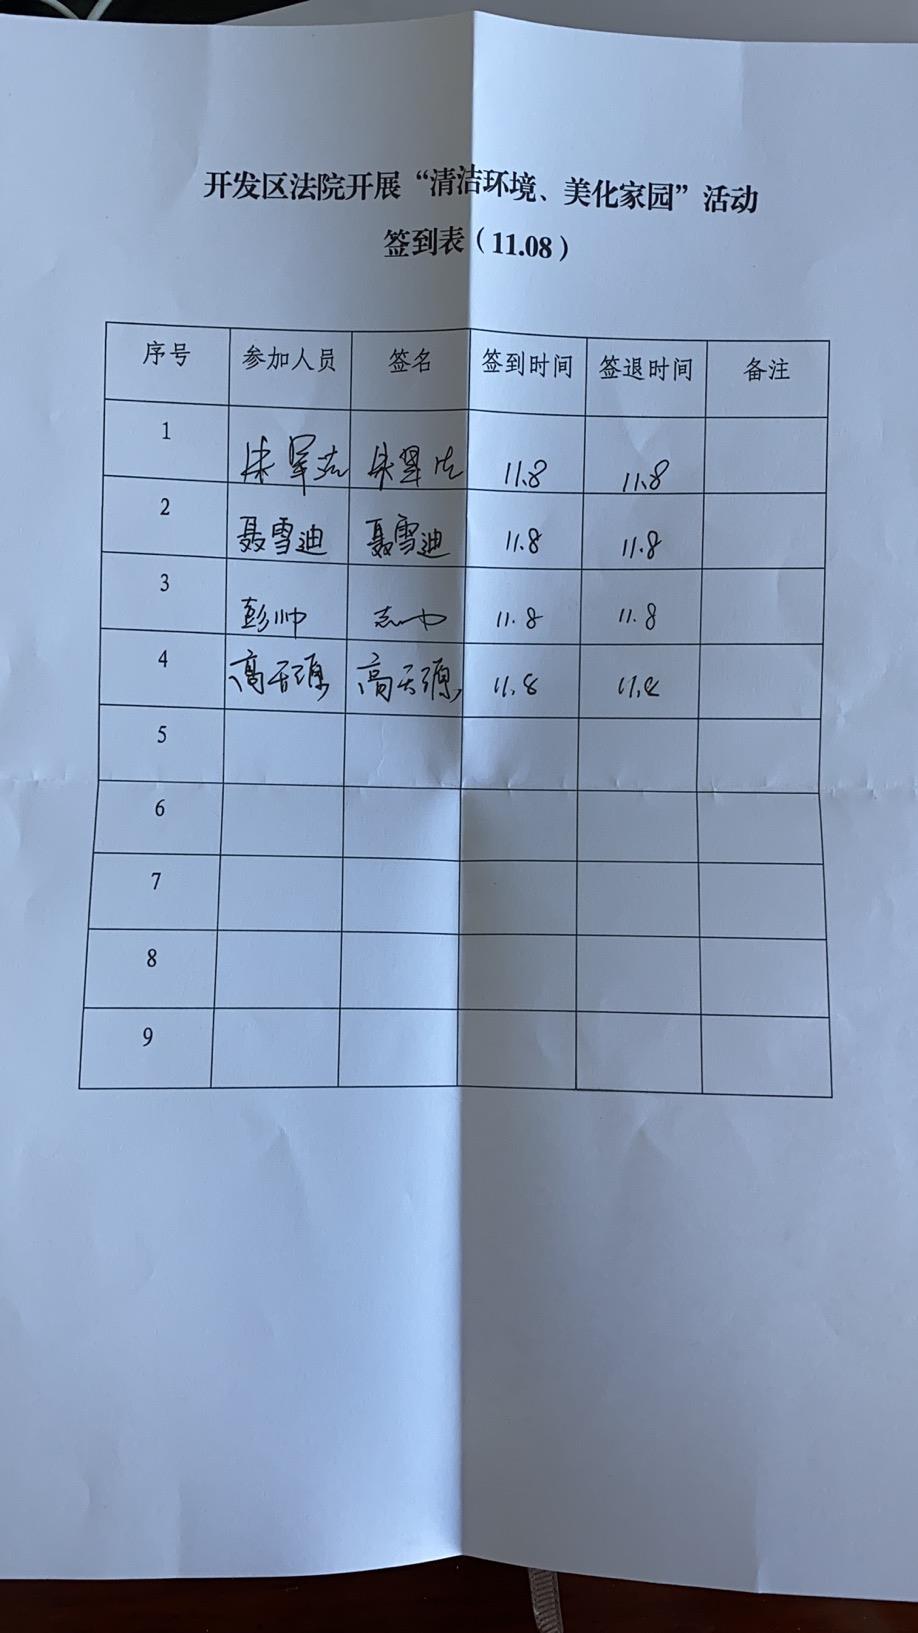 开发区法院开展“清洁环境、美化家园”活动
签到表（11.08）
序号 参加人员 签名 签到时间 签退时间 备注
1 11.8 11.8
2 聂雪迪 聂雪迪 11.8 11.8
3 彭帅 11.8 11.8
4 高天源 高天源 11.8 11.8
5
6
7
8
9